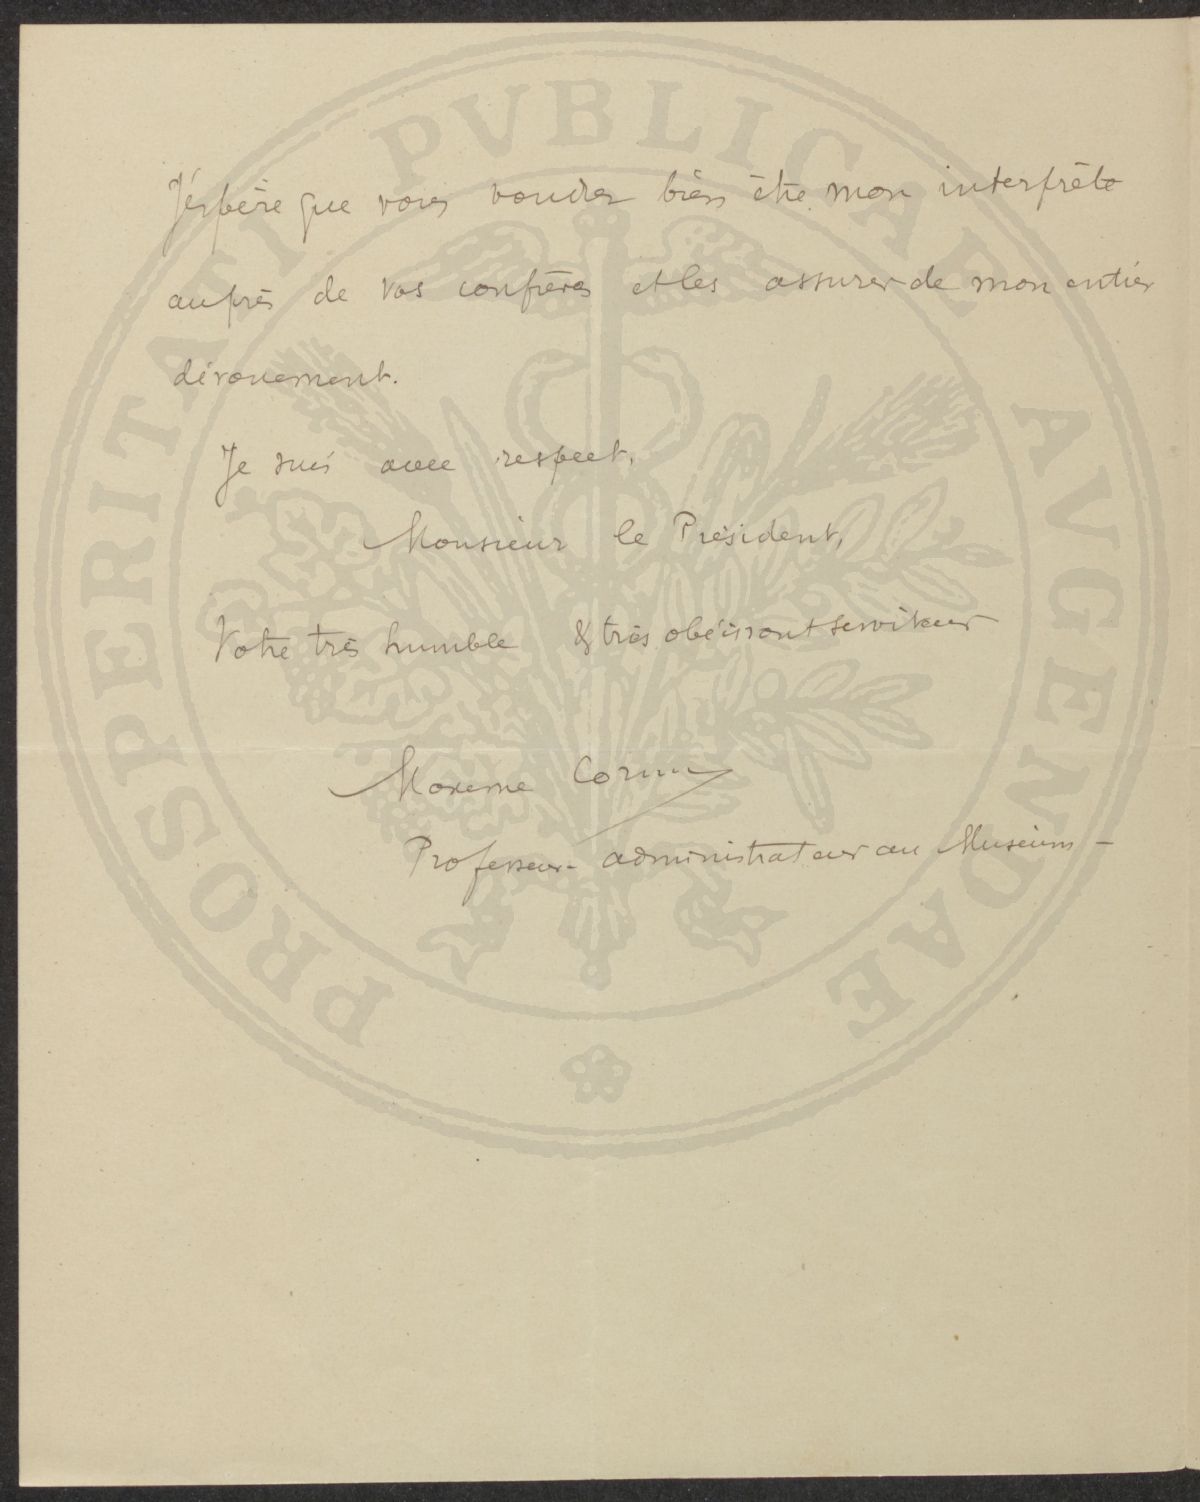 J'espère que vous voudrez bien être mon interprète
auprès de vos confrères et les assurer de mon entier
dévouement.
Je suis avec respect,
Monsieur le Président,
Votre très humble & très obéissant serviteur
Maxime Cornu
Professeur-administrateur au Muséum -
PROSPERITATI PVBLICAE AVGENDAE